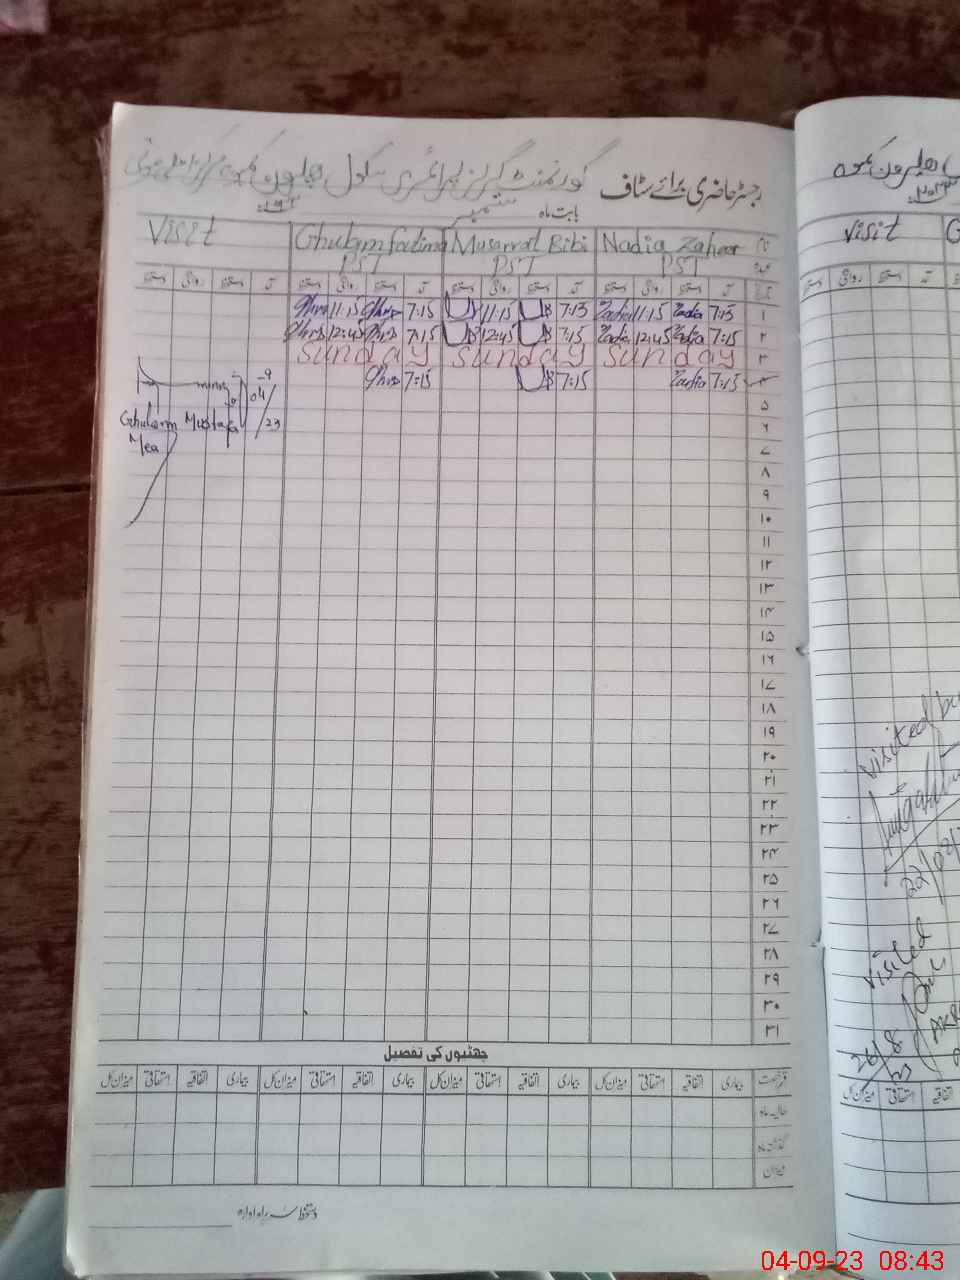 رجسٹر حاضری برائے سٹاف گورنمنٹ گرلز پرائمری سکول
بابت ماہ ستمبر
Visit Ghulam fatima Musarrat Bibi Nadia Zaheer نام
PST PST PST عہدہ
دستخط روانگی دستخط آمد دستخط روانگی دستخط آمد دستخط روانگی دستخط آمد دستخط روانگی دستخط آمد تاریخ
11:15 7:15 11:15 7:15 Nadia 11:15 Nadia 7:15 ۱
12:45 7:15 12:45 7:15 Nadia 12:45 Nadia 7:15 ۲
Sunday Sunday Sunday ۳
7:15 7:15 Nadia 7:15 ۴
04/9/23
Ghulam Mustafa
Mea
۵
۶
۷
۸
۹
۱۰
۱۱
۱۲
۱۳
۱۴
۱۵
۱۶
۱۷
۱۸
۱۹
۲۰
۲۱
۲۲
۲۳
۲۴
۲۵
۲۶
۲۷
۲۸
۲۹
۳۰
۳۱
چھٹیوں کی تفصیل
رخصت بیماری اتفاقیہ استحقاقی میزان کل بیماری اتفاقیہ استحقاقی میزان کل بیماری اتفاقیہ استحقاقی میزان کل بیماری اتفاقیہ استحقاقی میزان کل
حالیہ ماہ
گذشتہ ماہ
میزان
دستخط سربراہ ادارہ
visit
Visited
Visited
اتفاقیہ استحقاقی میزان کل
04-09-23 08:43